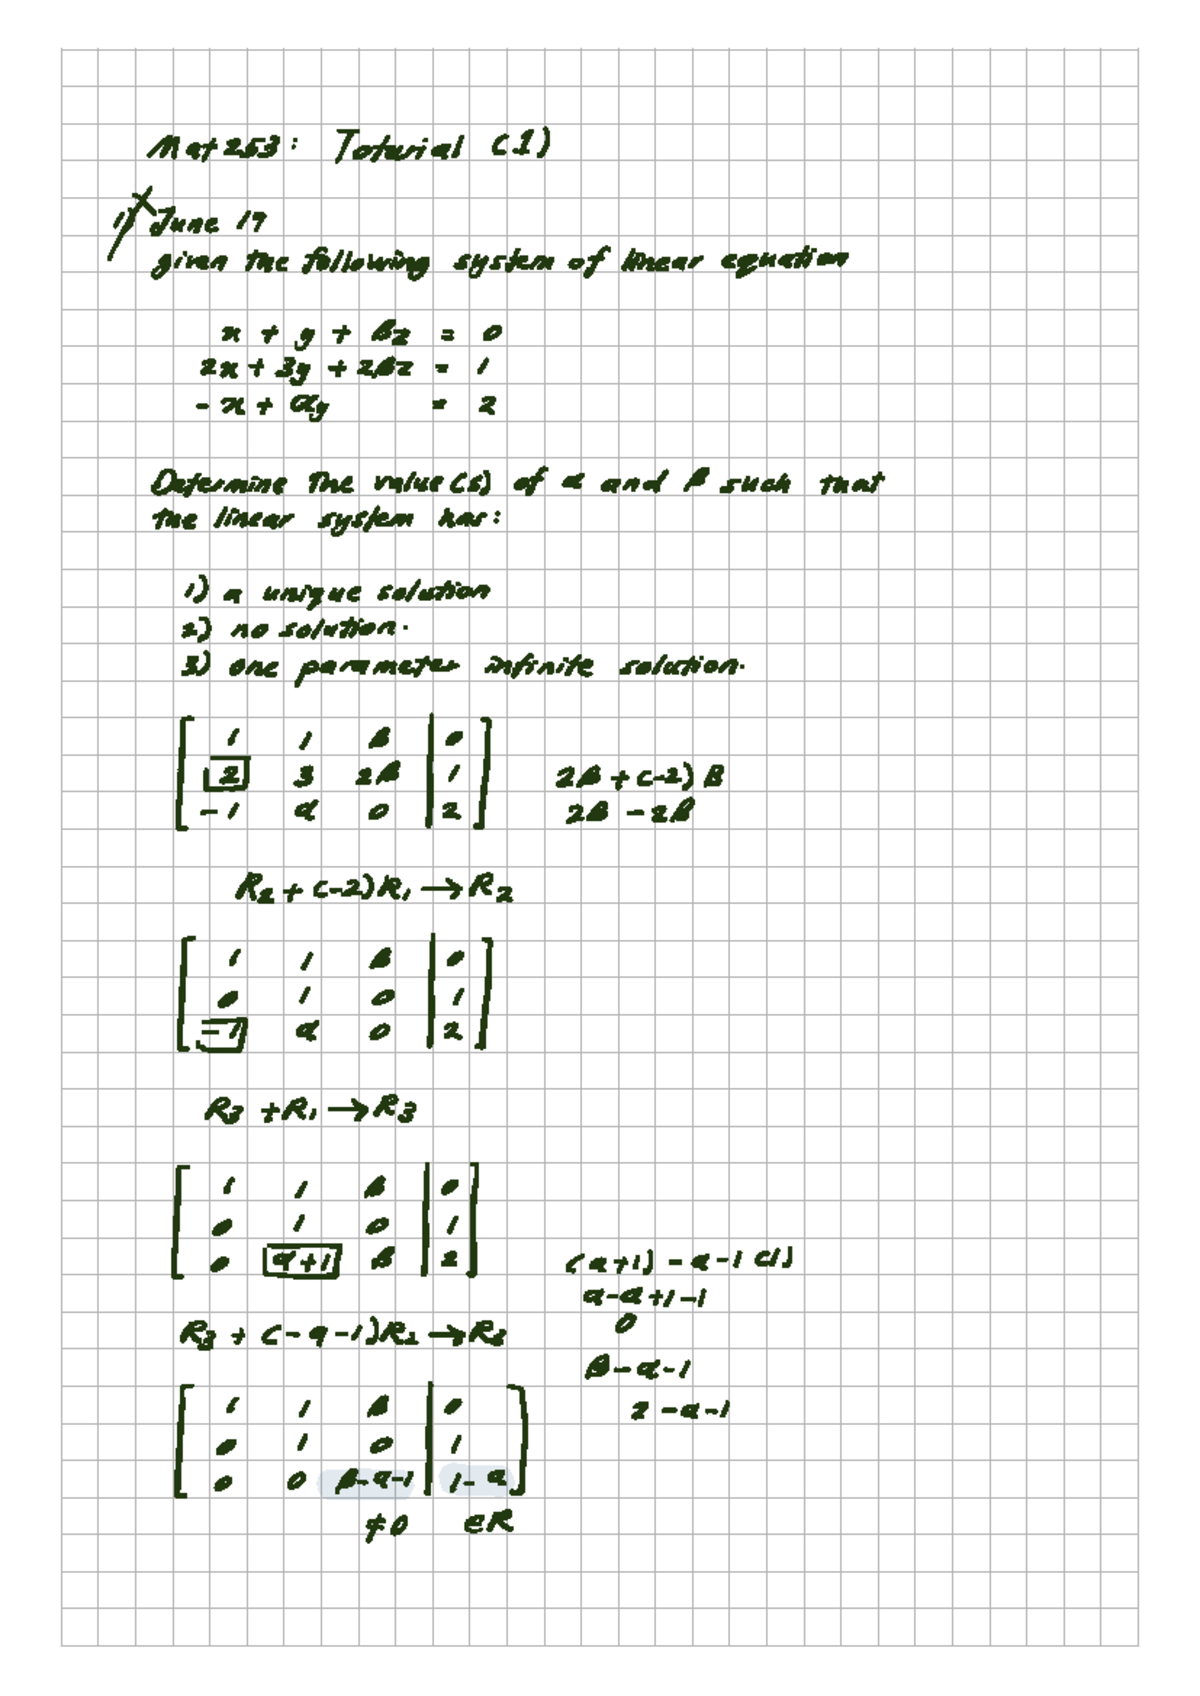 Mat253: Toturial (1)
1) June 19
given the following system of linear equation
x + y + βz = 0
2x + 3y + 2βz = 1
- x + αy = 2
Determine the value(s) of α and β such that
the linear system has:
1) a unique solution
2) no solution.
3) one parameter infinite solution.
1 1 β 0
2 3 2β 1 2β + (-2) β
-1 α 0 2 2β - 2β
R2 + (-2)R1 → R2
1 1 β 0
0 1 0 1
-1 α 0 2
R3 + R1 → R3
1 1 β 0
0 1 0 1
0 α+1 β 2 (α+1) - α-1 (1)
α-α+1-1
R3 + (-α-1)R2 → R3 0
β-α-1
1 1 β 0 2 -α-1
0 1 0 1
0 0 β-α-1 1-α
≠0 ∈R